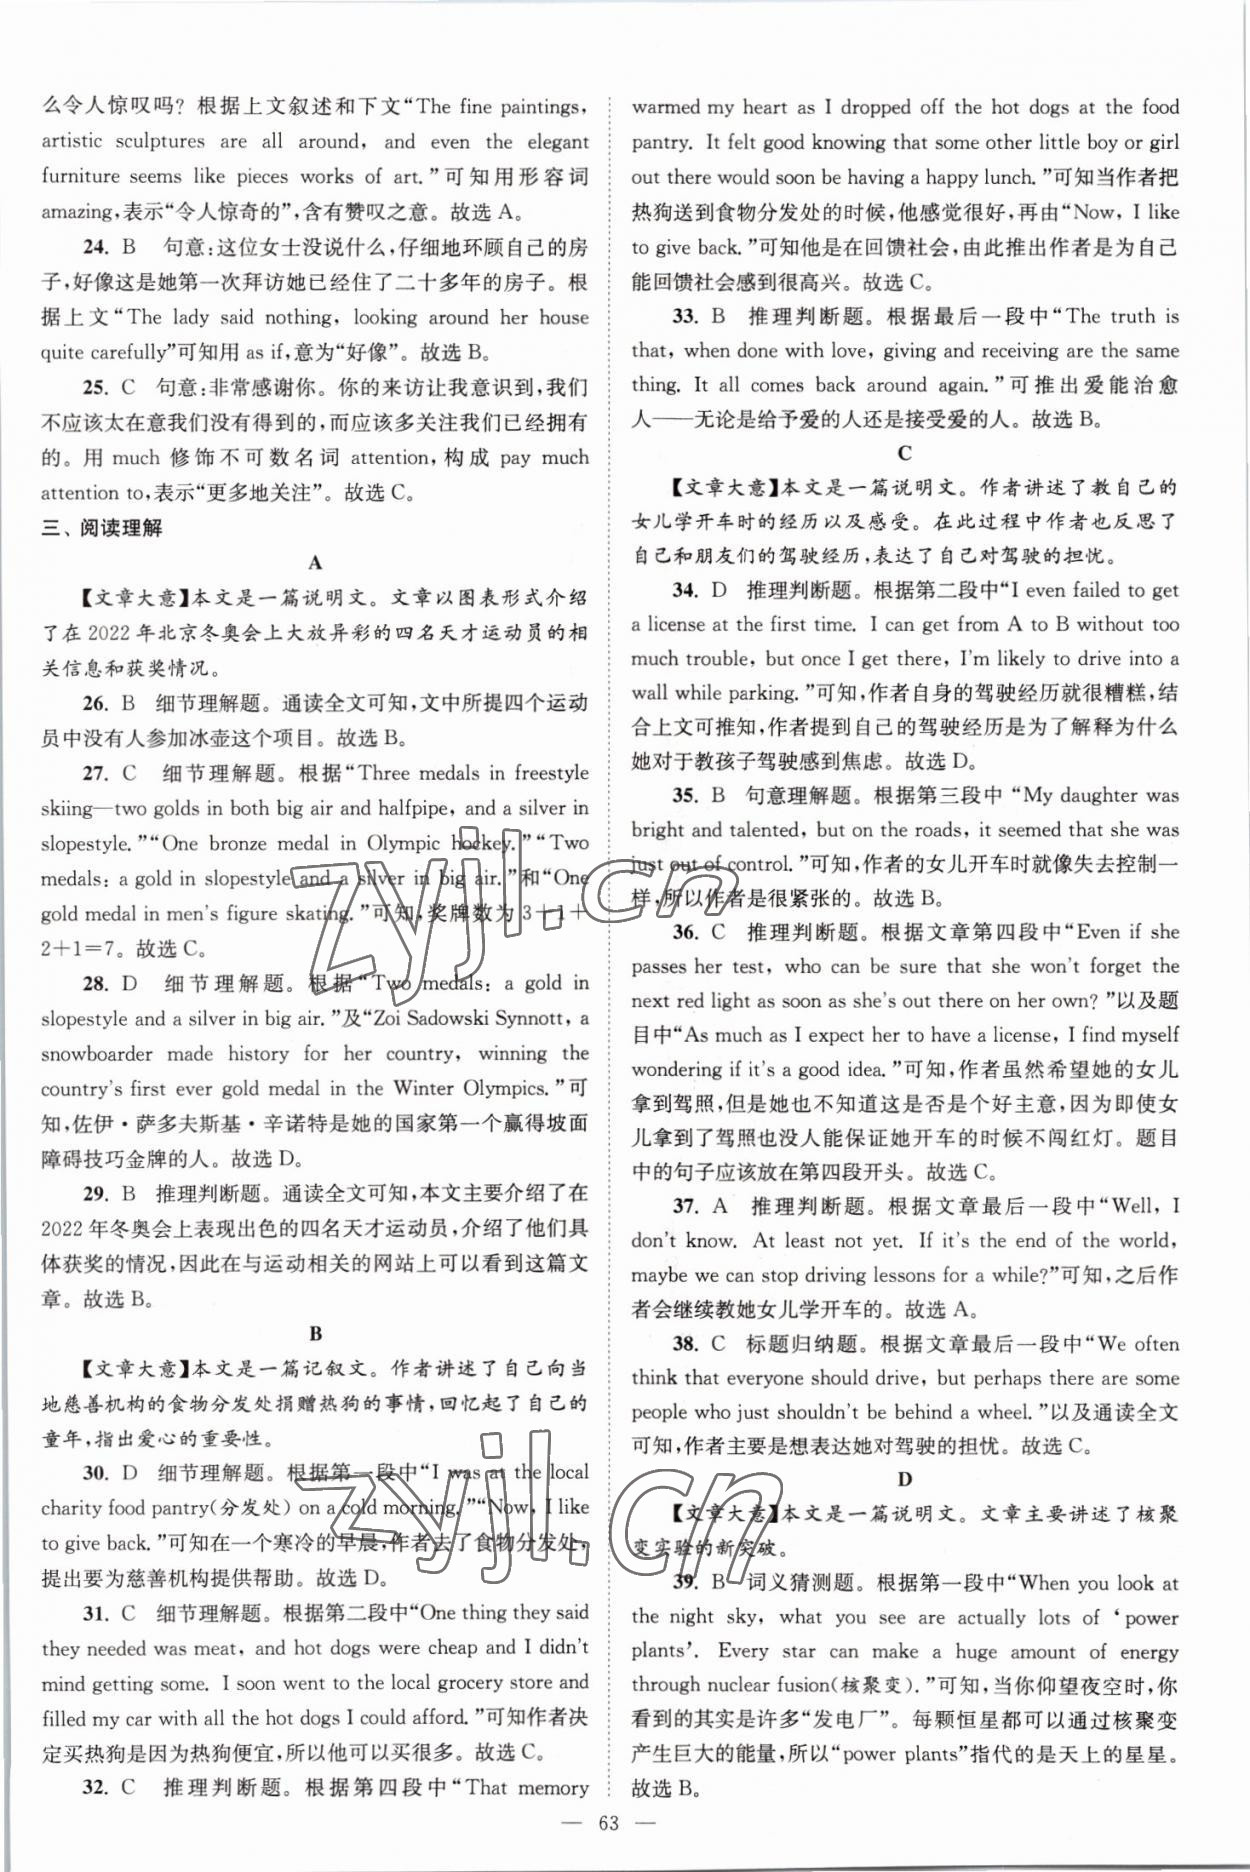 么令人惊叹吗？根据上文叙述和下文“The fine paintings,
artistic sculptures are all around, and even the elegant
furniture seems like pieces works of art.”可知用形容词
amazing,表示“令人惊奇的”,含有赞叹之意。故选 A。
24. B 句意:这位女士没说什么,仔细地环顾自己的房
子,好像这是她第一次拜访她已经住了二十多年的房子。根
据上文“The lady said nothing, looking around her house
quite carefully”可知用 as if,意为“好像”。故选 B。
25. C 句意:非常感谢你。你的来访让我意识到,我们
不应该太在意我们没有得到的,而应该多关注我们已经拥有
的。用 much 修饰不可数名词 attention,构成 pay much
attention to,表示“更多地关注”。故选 C。
三、阅读理解
A
【文章大意】本文是一篇说明文。文章以图表形式介绍
了在 2022 年北京冬奥会上大放异彩的四名天才运动员的相
关信息和获奖情况。
26. B 细节理解题。通读全文可知,文中所提四个运动
员中没有人参加冰壶这个项目。故选 B。
27. C 细节理解题。根据“Three medals in freestyle
skiing—two golds in both big air and halfpipe, and a silver in
slopestyle.”“One bronze medal in Olympic hockey.”“Two
medals: a gold in slopestyle and a silver in big air.”和“One
gold medal in men's figure skating.”可知,奖牌数为 3＋1＋
2＋1＝7。故选 C。
28. D 细节理解题。根据“Two medals: a gold in
slopestyle and a silver in big air.”及“Zoi Sadowski Synnott, a
snowboarder made history for her country, winning the
country's first ever gold medal in the Winter Olympics.”可
知,佐伊·萨多夫斯基·辛诺特是她的国家第一个赢得坡面
障碍技巧金牌的人。故选 D。
29. B 推理判断题。通读全文可知,本文主要介绍了在
2022 年冬奥会上表现出色的四名天才运动员,介绍了他们具
体获奖的情况,因此在与运动相关的网站上可以看到这篇文
章。故选 B。
B
【文章大意】本文是一篇记叙文。作者讲述了自己向当
地慈善机构的食物分发处捐赠热狗的事情,回忆起了自己的
童年,指出爱心的重要性。
30. D 细节理解题。根据第一段中“I was at the local
charity food pantry(分发处) on a cold morning.”“Now, I like
to give back.”可知在一个寒冷的早晨,作者去了食物分发处,
提出要为慈善机构提供帮助。故选 D。
31. C 细节理解题。根据第二段中“One thing they said
they needed was meat, and hot dogs were cheap and I didn't
mind getting some. I soon went to the local grocery store and
filled my car with all the hot dogs I could afford.”可知作者决
定买热狗是因为热狗便宜,所以他可以买很多。故选 C。
32. C 推理判断题。根据第四段中“That memory
warmed my heart as I dropped off the hot dogs at the food
pantry. It felt good knowing that some other little boy or girl
out there would soon be having a happy lunch.”可知当作者把
热狗送到食物分发处的时候,他感觉很好,再由“Now, I like
to give back.”可知他是在回馈社会,由此推出作者是为自己
能回馈社会感到很高兴。故选 C。
33. B 推理判断题。根据最后一段中“The truth is
that, when done with love, giving and receiving are the same
thing. It all comes back around again.”可推出爱能治愈
人——无论是给予爱的人还是接受爱的人。故选 B。
C
【文章大意】本文是一篇说明文。作者讲述了教自己的
女儿学开车时的经历以及感受。在此过程中作者也反思了
自己和朋友们的驾驶经历,表达了自己对驾驶的担忧。
34. D 推理判断题。根据第二段中“I even failed to get
a license at the first time. I can get from A to B without too
much trouble, but once I get there, I'm likely to drive into a
wall while parking.”可知,作者自身的驾驶经历就很糟糕,结
合上文可推知,作者提到自己的驾驶经历是为了解释为什么
她对于教孩子驾驶感到焦虑。故选 D。
35. B 句意理解题。根据第三段中“My daughter was
bright and talented, but on the roads, it seemed that she was
just out of control.”可知,作者的女儿开车时就像失去控制一
样,所以作者是很紧张的。故选 B。
36. C 推理判断题。根据文章第四段中“Even if she
passes her test, who can be sure that she won't forget the
next red light as soon as she's out there on her own?”以及题
目中“As much as I expect her to have a license, I find myself
wondering if it's a good idea.”可知,作者虽然希望她的女儿
拿到驾照,但是她也不知道这是否是个好主意,因为即使女
儿拿到了驾照也没人能保证她开车的时候不闯红灯。题目
中的句子应该放在第四段开头。故选 C。
37. A 推理判断题。根据文章最后一段中“Well, I
don't know. At least not yet. If it's the end of the world,
maybe we can stop driving lessons for a while?”可知,之后作
者会继续教她女儿学开车的。故选 A。
38. C 标题归纳题。根据文章最后一段中“We often
think that everyone should drive, but perhaps there are some
people who just shouldn't be behind a wheel.”以及通读全文
可知,作者主要是想表达她对驾驶的担忧。故选 C。
D
【文章大意】本文是一篇说明文。文章主要讲述了核聚
变实验的新突破。
39. B 词义猜测题。根据第一段中“When you look at
the night sky, what you see are actually lots of ‘power
plants’. Every star can make a huge amount of energy
through nuclear fusion(核聚变).”可知,当你仰望夜空时,你
看到的其实是许多“发电厂”。每颗恒星都可以通过核聚变
产生巨大的能量,所以“power plants”指代的是天上的星星。
故选 B。
— 63 —
zyjl.cn
zyjl.cn